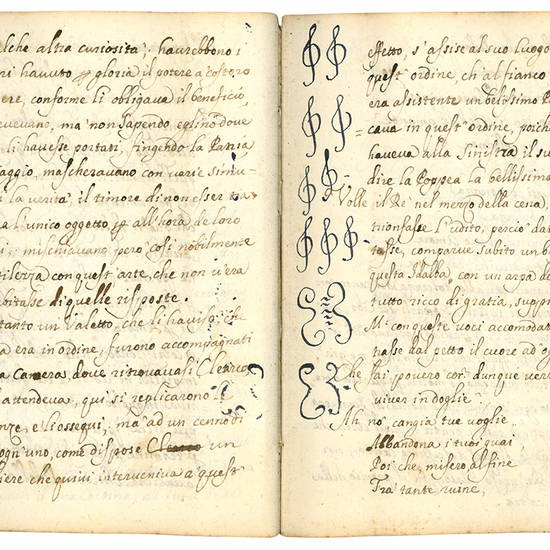 elche altra curiosità; haurebbono i
ri hauuto p gloria il potere a costoro
ere, conforme li obligaua il beneficio,
ceueuano, ma non sapendo eglino doue
li hauese portati, fingendo la Patria
iaggio, mascherauano con uarie simu-
la uerità; il timore di non esser tra
l'unico oggetto, p all'hora de loro
, mischiauano però così nobilmente
tilezza con quest'arte, che non u'era
bitasse di quelle risposte.
tanto un Valetto, che li hauisò, che
a era in ordine, furono accompagnati
a Camera doue ritrouauasi Clearco
attendeua, qui si replicarono le
nze, e li ossequi, ma ad un cenno di
ogn'uno, come dispose un
iere che quiui interueniua a quest
effetto, s'assise al suo luogo
quest'ordine, ch'al fianco
era asistente un belissimo
caua in quest'ordine, poich
haueua alla sinistra il su
dire la Poppea la bellissima
Volle il Rè nel mezzo della cena,
trionfasse l'udito, perciò dat
tasse, comparue subito un
questa Isalta, con un arpa d
tutto ricco di gratia, supp
con queste uoci accomodat
tiasse dal petto il cuore ad
Che fai pouero cor: dunque
uiuer in doglie.
Ah no cangia tue uoglie.
Abbandona i tuoi guai
Poi che, misero al fine
Tra tante ruine,